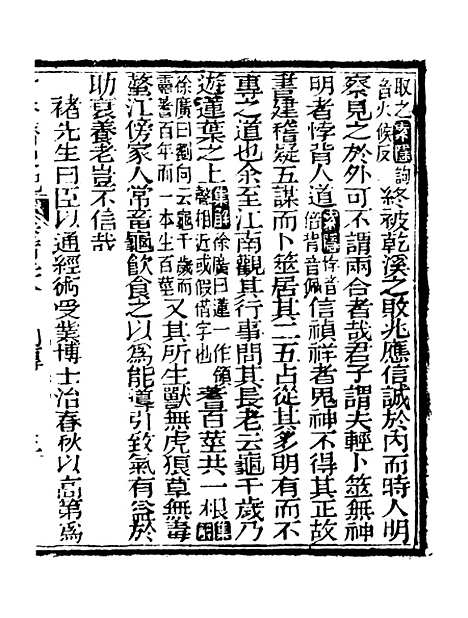 取之【索隱詢
音火候反】終被乾溪之敗兆應信誠於內而時人明
察見之於外可不謂兩合者哉君子謂夫輕卜筮無神
明者悖背人道【索隱悖音
倍背音佩】信禎祥者鬼神不得其正故
書建稽疑五謀而卜筮居其二五占從其多明有而不
專之道也余至江南觀其行事問其長老云龜千歲乃
遊蓮葉之上【集解徐廣曰蓮一作領
聲相近或假借字也】蓍百莖共一根【集解
徐廣曰劉向云龜千歲而
靈蓍百年而一本生百莖】又其所生獸無虎狼草無毒
螫江傍家人常畜龜飲食之以爲能導引致氣有益於
助衰養老豈不信哉
褚先生曰臣以通經術受業博士治春秋以高第爲